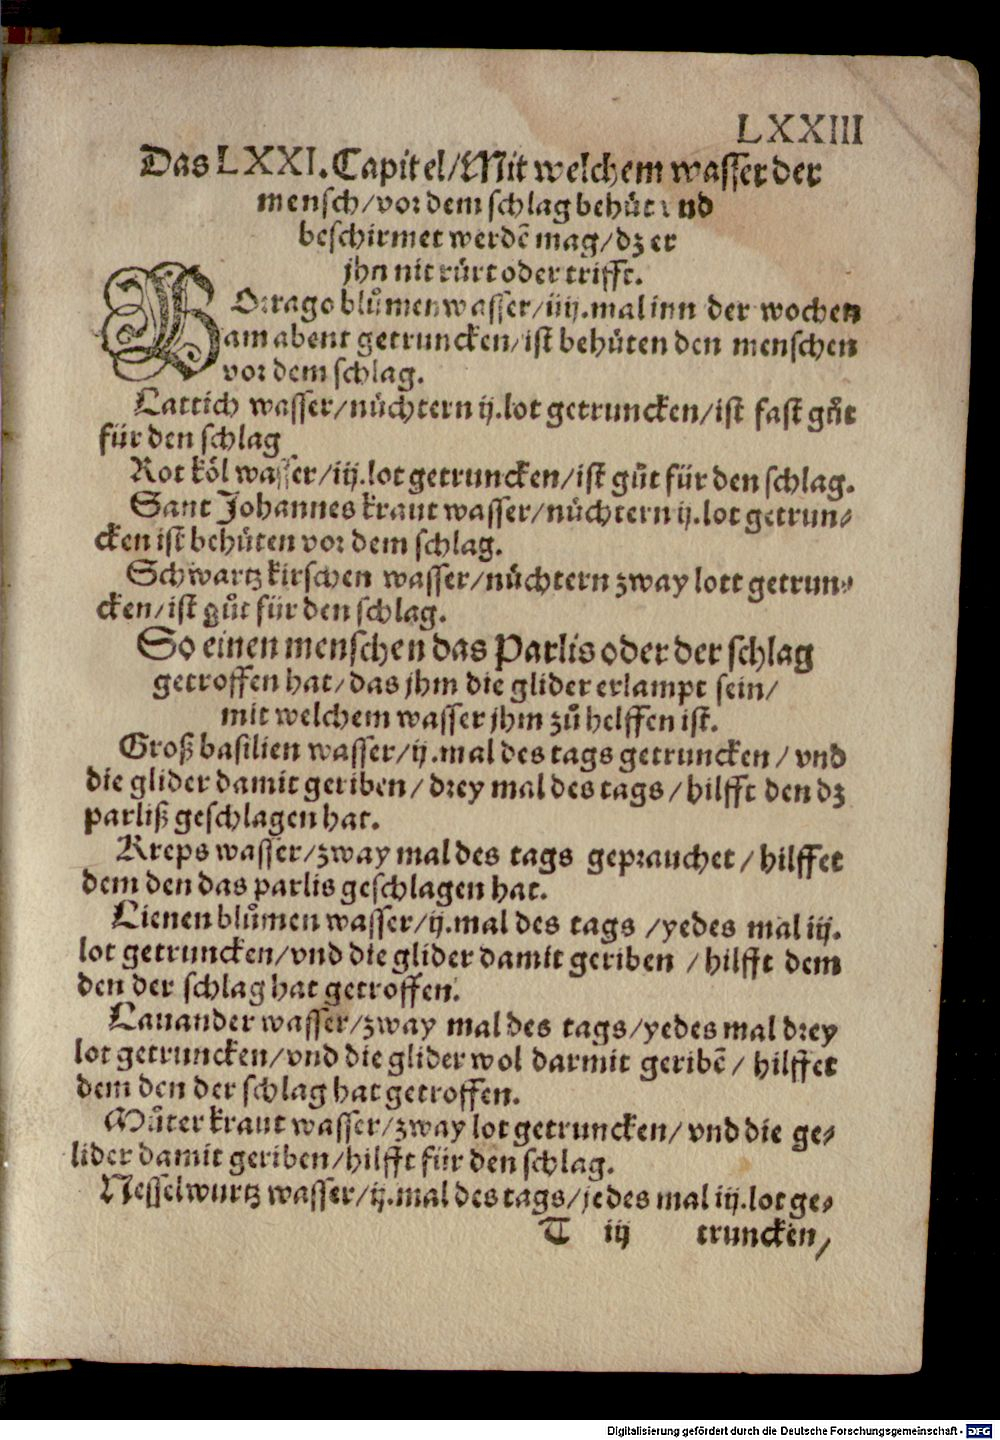 LXXIII
Das LXXI. Capitel/Mit welchem wasser der
mensch/vor dem schlag behuͤt vnd
beschirmet werdē mag/dz er
jhn nit ruͤrt oder trifft.
BOrrago bluͦmen wasser/iiij.mal inn der wochen
am abent getruncken/ist behuͤten den menschen
vor dem schlag.
Lattich wasser/nuͤchtern ij.lot getruncken/ist fast guͦt
für den schlag
Rot koͤl wasser/iij.lot getruncken/ist guͦt für den schlag.
Sant Johannes kraut wasser/nuͤchtern ij.lot getrun⸗
cken ist behuͤten vor dem schlag.
Schwartz kirschen wasser/nuͤchtern zway lott getrun⸗
cken/ist guͦt für den schlag.
So einen menschen das Parlis oder der schlag
getroffen hat/das jhm die glider erlampt sein/
mit welchem wasser jhm zuͦ helffen ist.
Groß basilien wasser/ij.mal des tags getruncken/vnd
die glider damit geriben/drey mal des tags/hilfft den dz
parliß geschlagen hat.
Kreps wasser/zway mal des tags geprauchet/hilffet
dem den das parlis geschlagen hat.
Lienen bluͦmen wasser/ij.mal des tags/yedes mal iij.
lot getruncken/vnd die glider damit geriben/hilfft dem
den der schlag hat getroffen.
Lauander wasser/zway mal des tags/yedes mal drey
lot getruncken/vnd die glider wol darmit geribē/hilffet
dem den der schlag hat getroffen.
Muͦter kraut wasser/zway lot getruncken/vnd die ge⸗
lider damit geriben/hilfft für den schlag.
Nesselwurtz wasser/ij.mal des tags/jedes mal iij.lot ge⸗
T iij truncken/
Digitalisierung gefördert durch die Deutsche Forschungsgemeinschaft - DFG